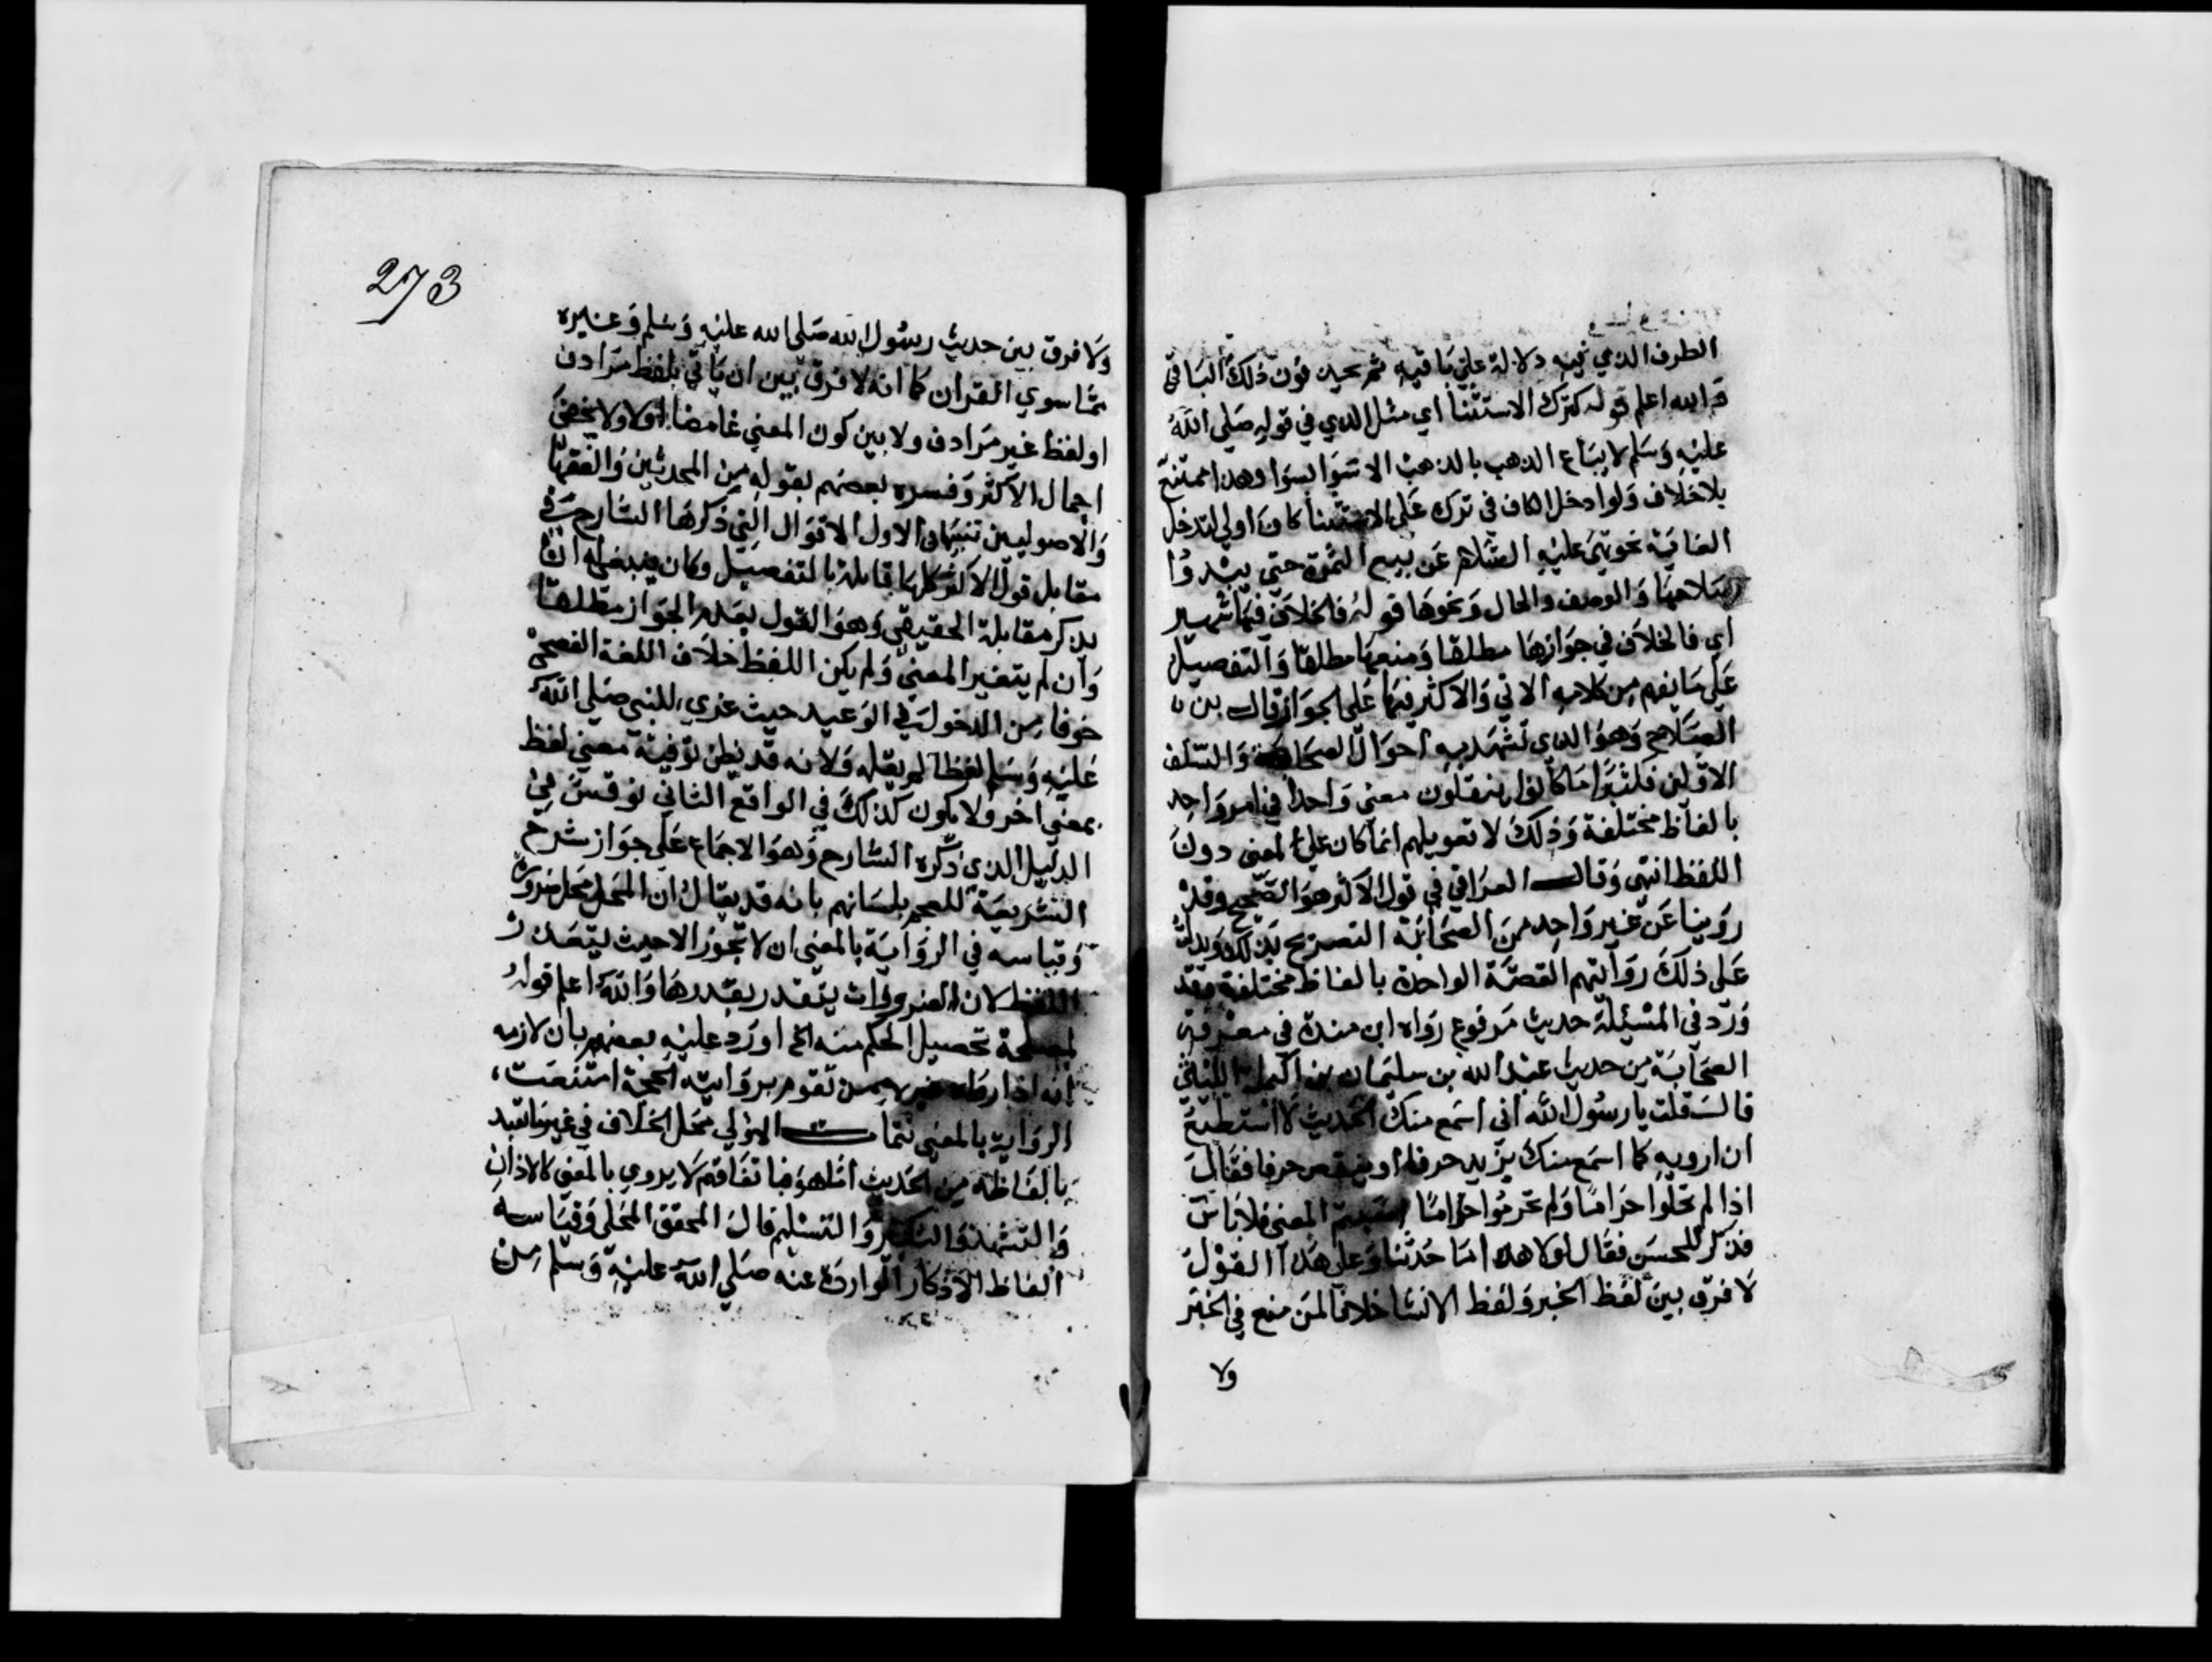 الطرف الذي فيه دلالة علي ما فيه ثم يحيه فون ذلك الباقي
والله اعلم قوله كترك الاستثنا اي مثل الذي في قوله صلي الله
عليه وسلم لا يباع الذهب بالذهب الا سوا بسوا وهذا ممتنع
بلا خلاف ولو ادخل الكاف في ترك علي الاستثنا كان اولي لتدخل
الغاية نحو نهي عليه السلام عن بيع الثمرة حتي يبدوا
صلاحها والوصف والحال ونحوها قوله فالخلاف فيها شهير
اي فالخلاف في جوازها مطلقا ومنعها مطلقا والتفصيل
علي ما يفهم من كلامه الاتي والاكثر فيها علي الجواز قال بن
الصلاح وهو الذي تشهد به احوال الصحابة والسلف
الاولين فكثيرا ما كانوا ينقلون معني واحدا في امر واحد
بالفاظ مختلفة وذلك لا تعويلهم انما كان علي المعني دون
اللفظ انتهي وقال العراقي في قول الاكثر هو الصحيح وقد
روينا عن غير واحد من الصحابة التصريح بذلك ويدل
علي ذلك روايتهم القصة الواحدة بالفاظ مختلفة وقد
ورد في المسئلة حديث مرفوع رواه ابن مندة في معرفة
الصحابة من حديث عبد الله بن سليمان بن اكيمة الليثي
قال قلت يا رسول الله اني اسمع منك الحديث لا استطيع
ان ارويه كما اسمع منك يزيد حرفا او ينقص حرفا فقال
اذا لم تحلوا حراما ولم تحرموا حلالا المعني فلا باس
فذكر للحسن فقال لولا هذا ما حدثنا وعلي هذا القول
لا فرق بين لفظ الخبر ولفظ الانشا خلافا لمن منع في الخبر
ولا
273
ولا فرق بين حديث رسول الله صلي الله عليه وسلم وغيره
مما سوي القران كما انه لا فرق بين ان ياتي بلفظ مرادف
او لفظ غير مرادف ولا بين كون المعني غامضا اولا ولا يخفي
اجمال الاكثر وفسره بعضهم بقوله من المحدثين والفقها
والاصوليين تنبيهان الاول الاقوال التي ذكرها الشارح في
مقابل قول الاكثر كلها قابلة بالتفصيل وكان ينبغي له ان
يذكر مقابلة الحقيقي وهو القول بعدم الجواز مطلقا
وان لم يتغير المعني ولم يكن اللفظ خلاف اللغة الفصحي
خوفا من الدخول في الوعيد حيث عزي للنبي صلي الله
عليه وسلم لفظا لم يقله ولانه قد يظن توفية معني لفظ
بمعني اخر ولا يكون كذلك في الواقع الثاني نوقش في
الدليل الذي ذكره الشارح وهو الاجماع علي جواز شرح
الشريعة للعجم بلسانهم بانه قد يقال ان المحل محل ضرورة
وقياسه في الرواية بالمعني ان لا تجوز الا حيث ليتعذر
اللفظ لان الضرورات يتقدر بقدرها والله اعلم قوله
لمصلحة تحصيل الحكم منه الخ اورد عليه بعضهم بان لازمه
انه اذا ممن تقوم بروايته الحجة امتنعت
الرواية بالمعني الاولي محل الخلاف في غير ما تعبد
بالفاظه من الحديث لا يروي بالمعني كالاذان
والتشهد والتكبير والتسليم قال المحقق المحلي وقياسه
الفاظ الاذكار الواردة عنه صلي الله عليه وسلم من